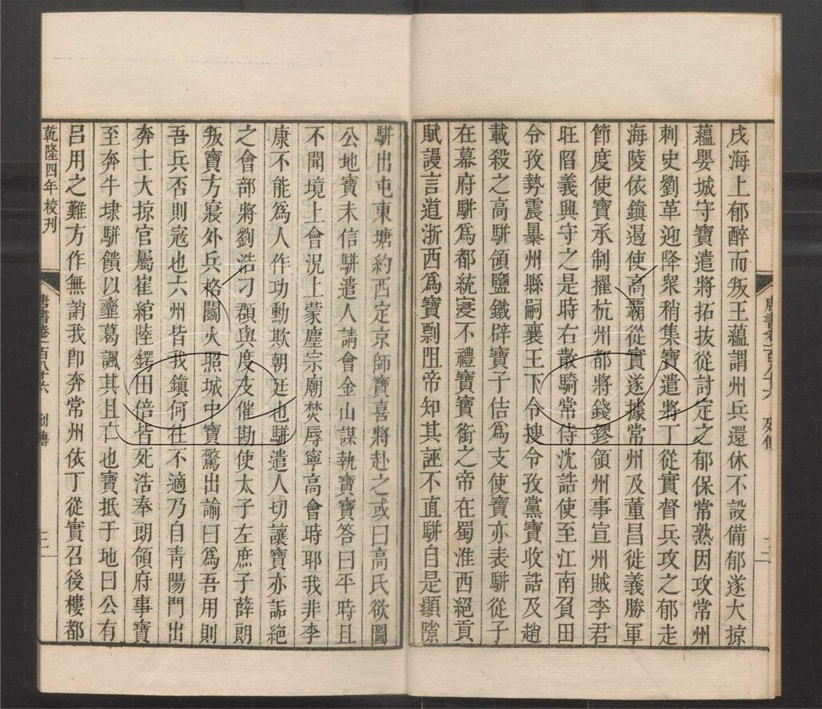 戍海上郁醉而叛王蘊謂州兵還休不設備郁遂大掠
蘊嬰城守寶遣將拓拔從討定之郁保常熟因攻常州
刺史劉革迎降衆稍集寶遣將丁從實督兵攻之郁走
海陵依鎮遏使高霸從實遂據常州及董昌徙義勝軍
節度使寶承制擢杭州都將錢鏐領州事宣州賊李君
旺陷義興守之是時右散騎常侍沈誥使至江南負田
令孜勢震暴州縣嗣襄王下令搜令孜黨寶收誥及趙
載殺之高駢領鹽鐵辟寶子佶爲支使寶亦表駢從子
在幕府駢爲都統寖不禮寶寶銜之帝在蜀淮西絕貢
賦謾言道浙西爲寶剽阻帝知其誣不直駢自是顯隙
唐書卷一百八十六 列傳 二
駢出屯東塘約西定京師寶喜將赴之或曰高氏欲圖
公地寶未信駢遣人請會金山謀執寶寶答曰平時且
不聞境上會況上蒙塵宗廟焚辱寧高會時耶我非李
康不能爲人作功勳欺朝廷也駢遣人切讓寶亦詬絕
之會部將劉浩刁頵與度支催勘使太子左庶子薛朗
叛寶方寢外兵格鬬火照城中寶驚出諭曰爲吾用則
吾兵否則寇也六州皆我鎮何往不適乃自靑陽門出
奔士大掠官屬崔綰陸鍔田倍皆死浩奉朗領府事寶
至奔牛埭駢饋以虀葛諷其且亡也寶抵于地曰公有
呂用之難方作無誚我卽奔常州依丁從實召後樓都
乾隆四年校刊
唐書卷一百八十六 列傳